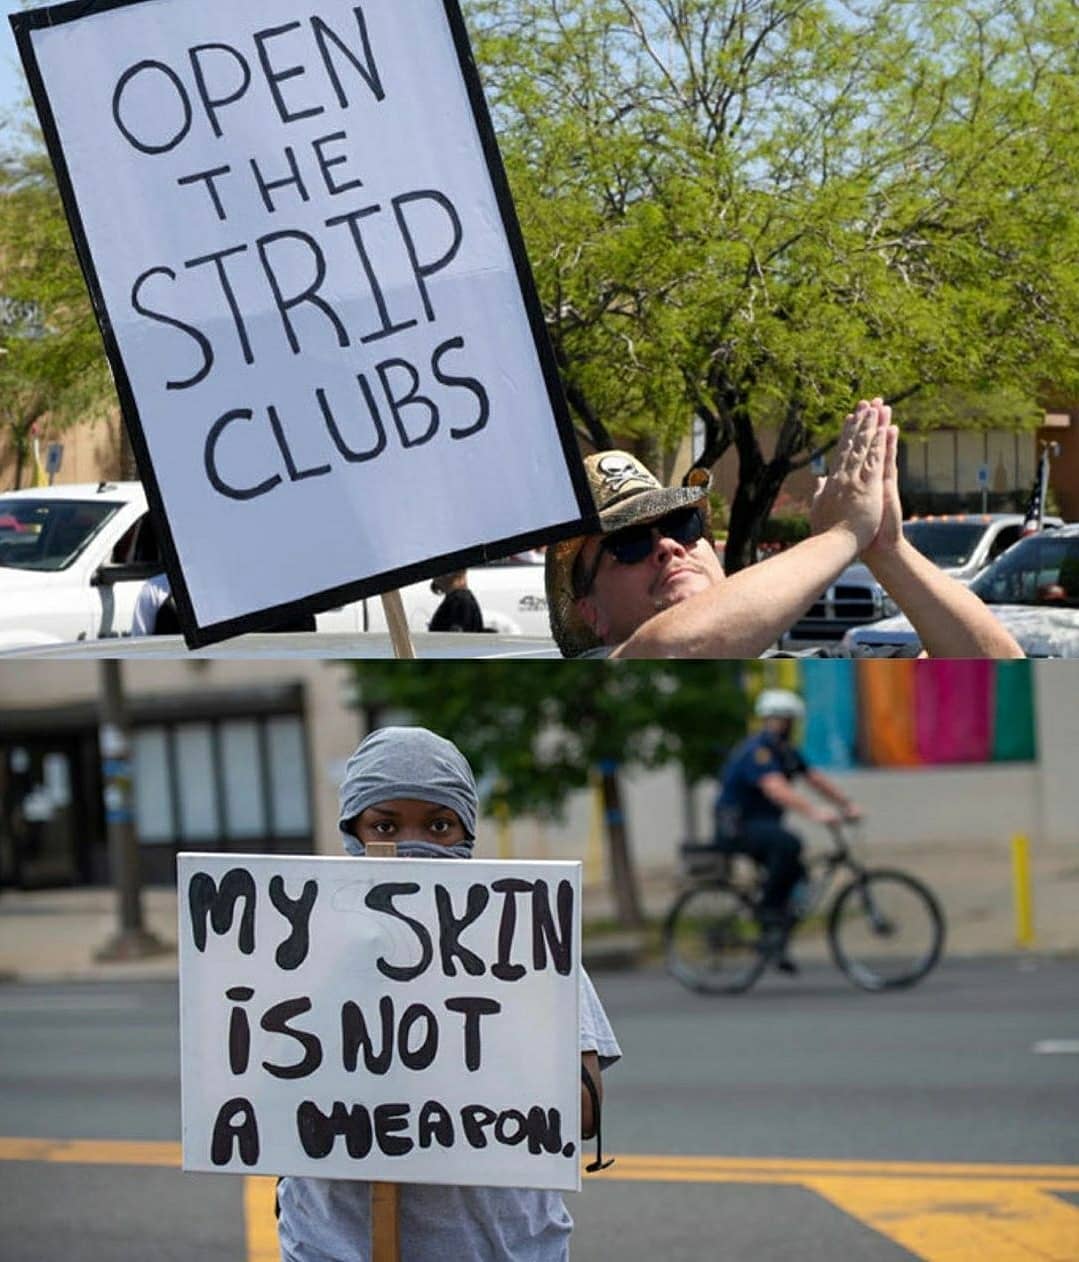 OPEN
THE
STRIP
CLUBS
MY SKIN
iS NOT
A WEAPON.